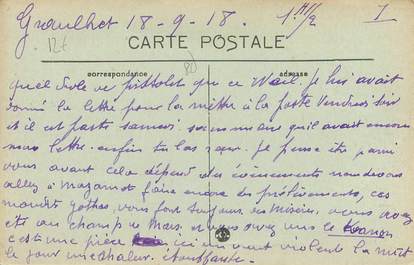 Graulhet 18-9-18. I
126
CARTE POSTALE
correspondance adresse
quel drole de pistolet que ce Je lui avait
donné la lettre pour la mettre à la poste Vendredi soir
et il est parti samedi qu'il avait encore
lettre. enfin tu las Je pense être parmi
vous avant cela dépend des événements nous devons
aller à Mazamet faire encore des prélèvements, ces
maudits gothas, vous font toujours des Misères, vous avez
été au champ de Mars, et vous avez vu le canon
c'est une pièce ici un vent violent la nuit
le jour une chaleur étouffante.